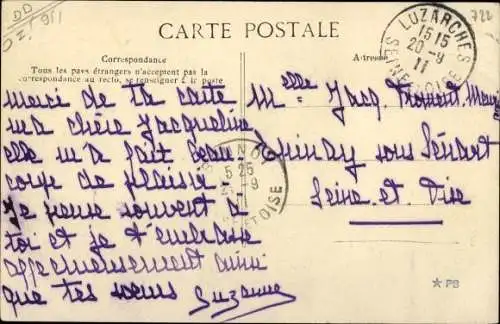 DD
OZ1 911
722
CARTE POSTALE
Correspondance
Tous les pays étrangers n'acceptent pas la
correspondance au recto, se renseigner à la poste
Adresse
LUZARCHES
15 15
20 - 9
11
SEINE-ET-OISE
merci de ta carte
ma chère Jacqueline
elle m'a fait beau-
coup de plaisir.
Je pense souvent à
toi et je t'embrasse
affectueusement ainsi
que tes sœurs Suzanne
5 25
9
11
ET OISE
Melle Jacq. Froment Meurice
Quincy sous Sénart
Seine et Oise
★ PB